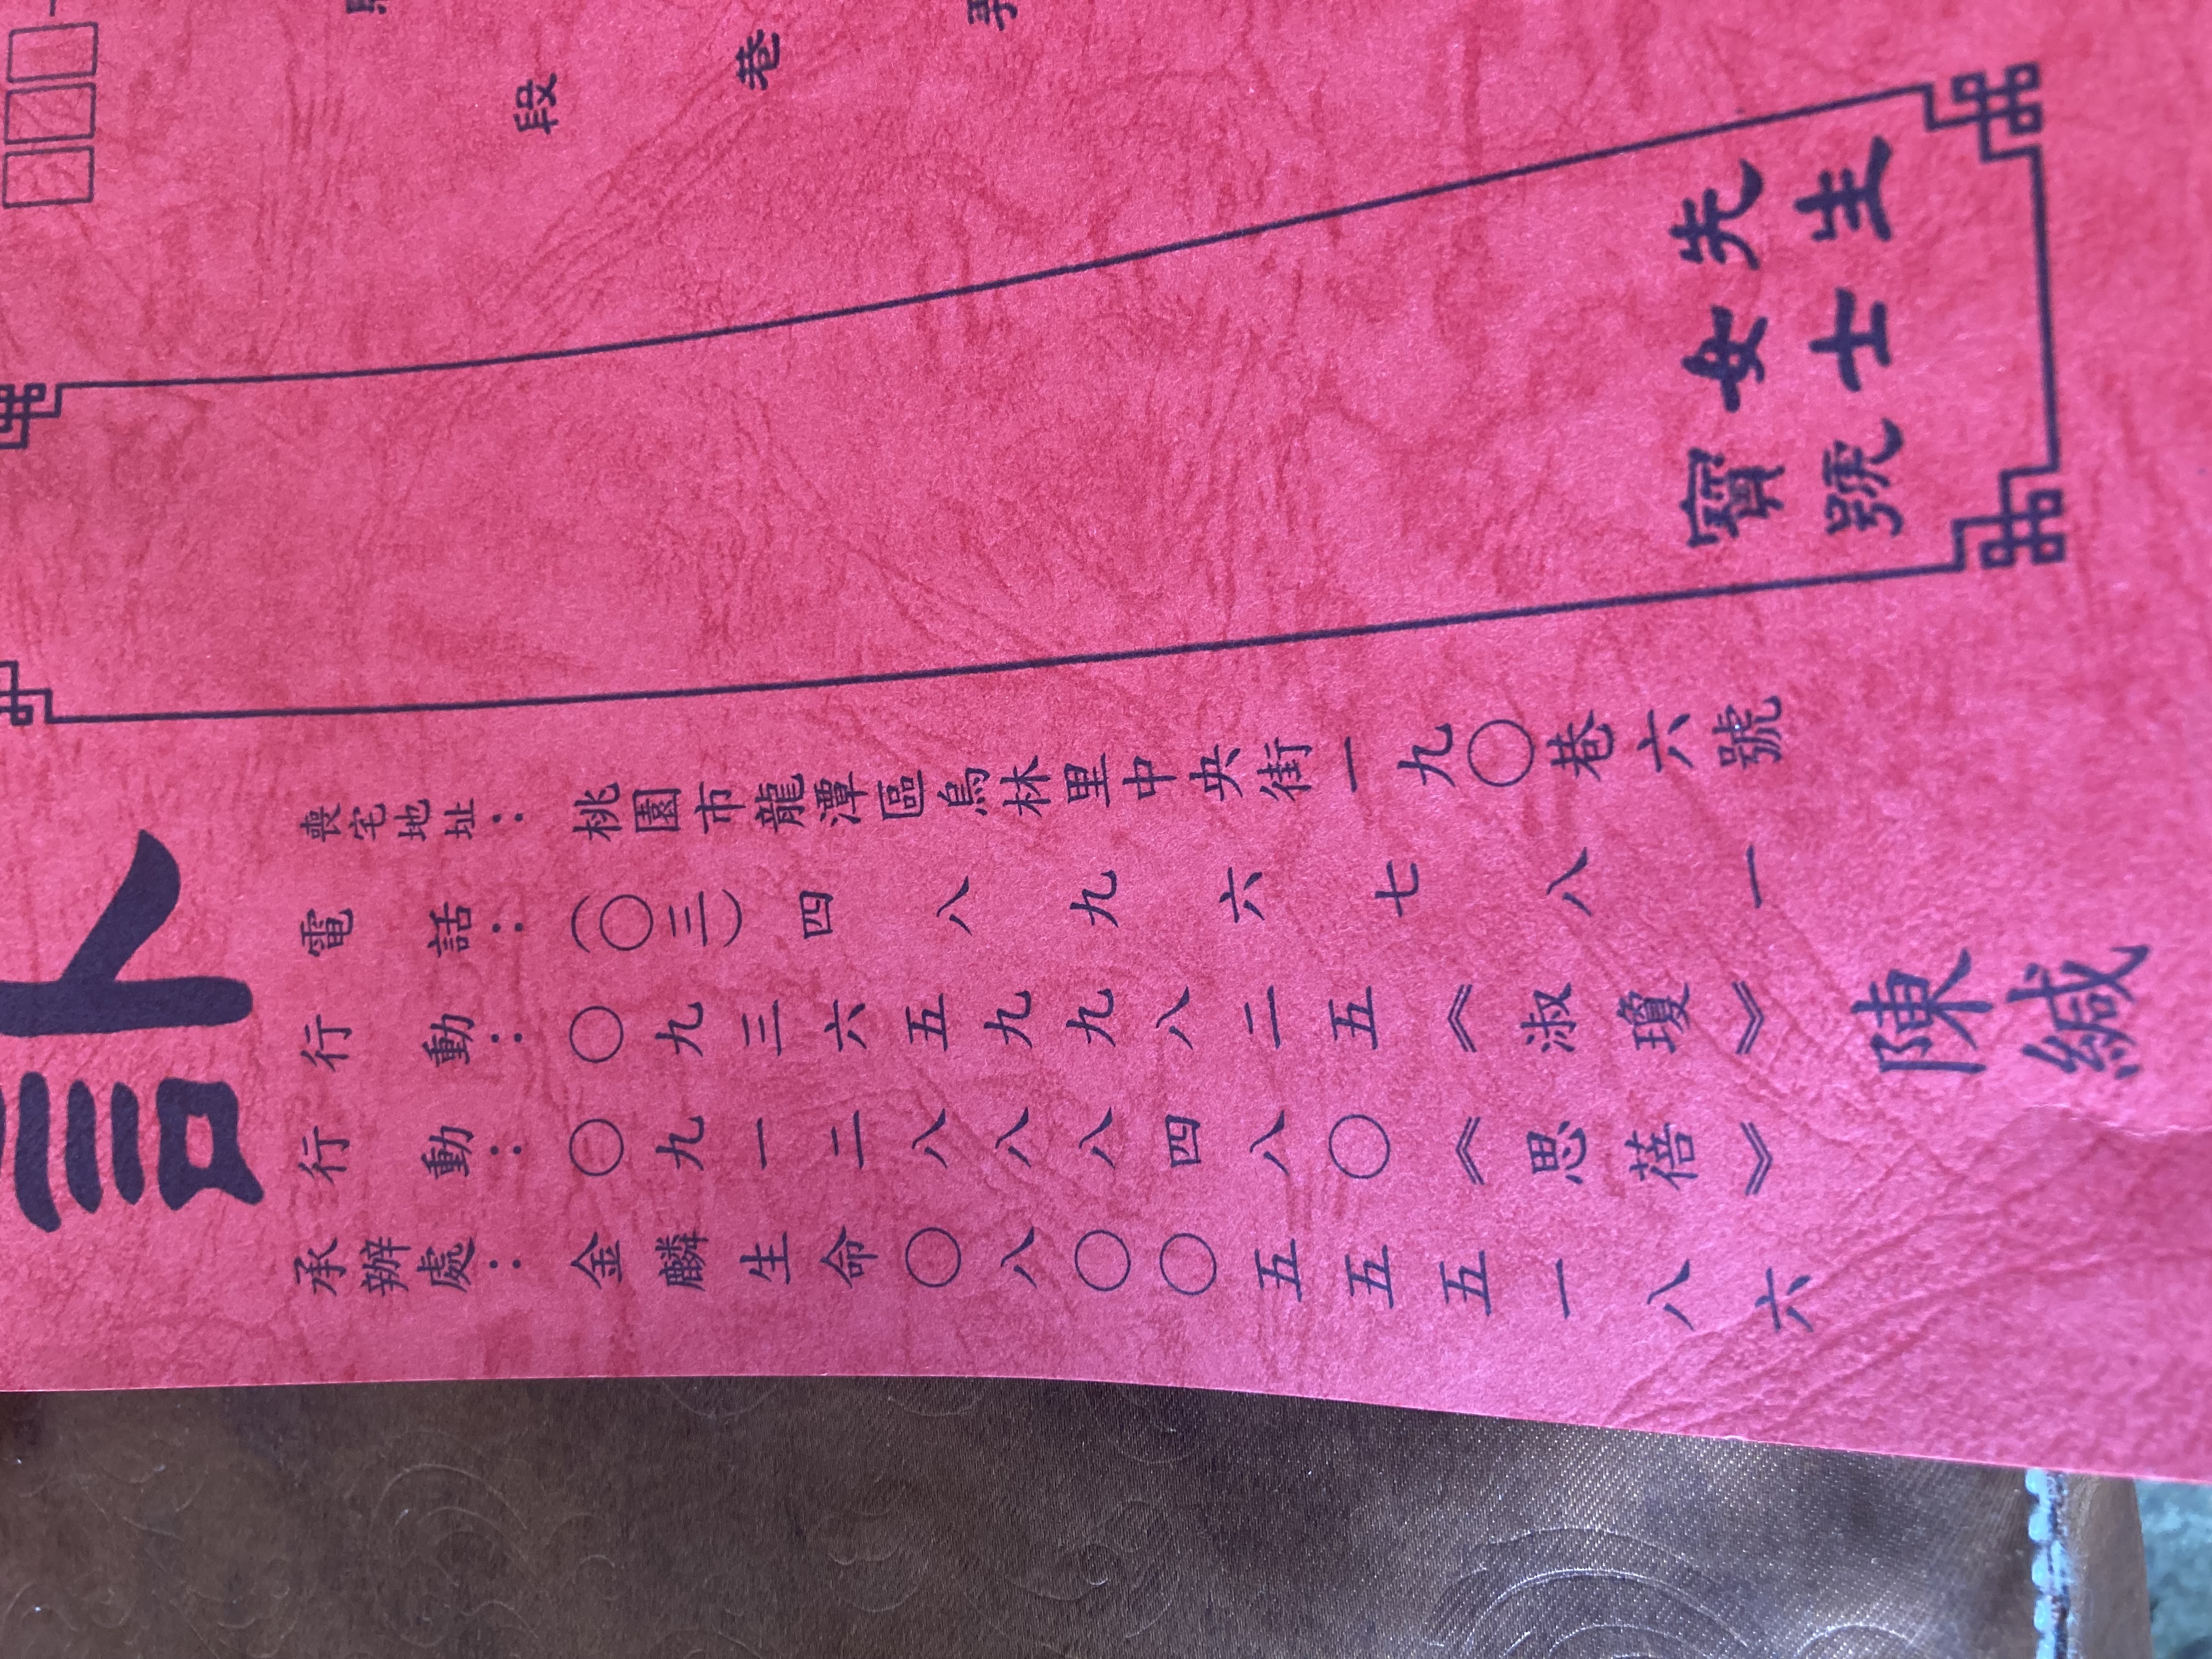 段
巷
先生
女士
寶號
喪宅地址：桃園市龍潭區烏林里中央街一九〇巷六號
電話：(〇三)四八九六七八一
行動：〇九三六五九九八二五《淑瓊》
行動：〇九一二八八八四八〇《思蓓》
承辦處：金麟生命〇八〇〇五五五一八六
陳緘
訃